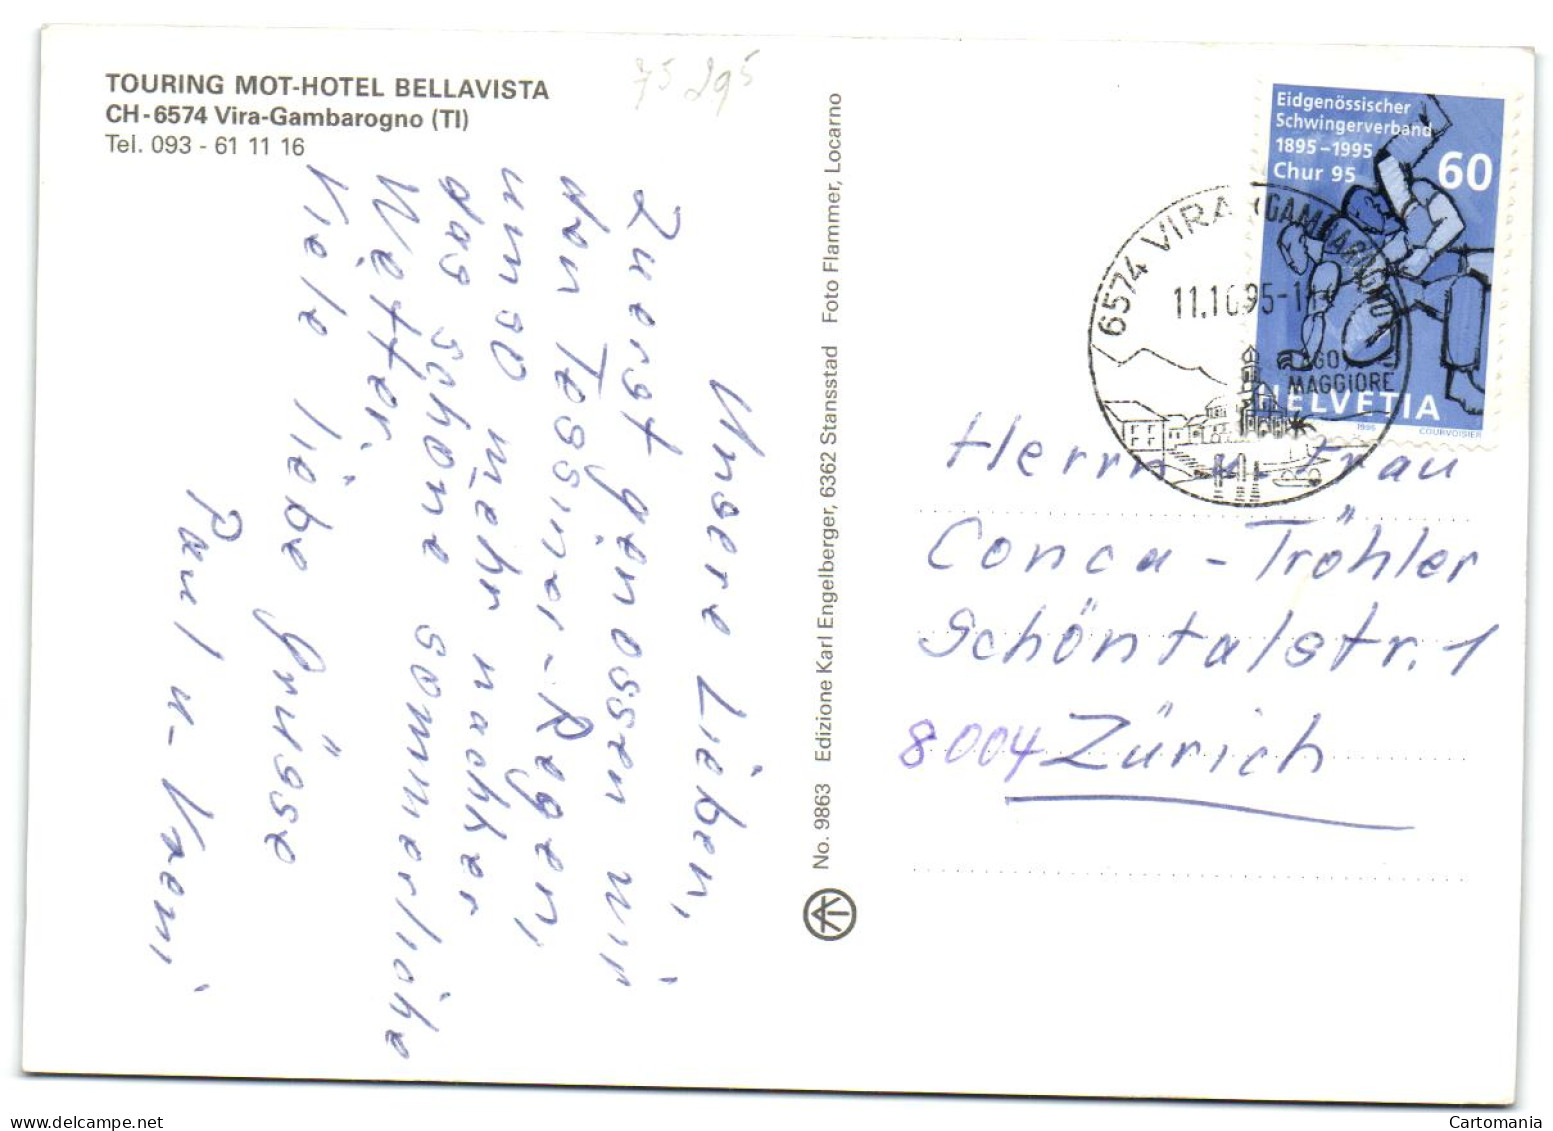 TOURING MOT-HOTEL BELLAVISTA
CH-6574 Vira-Gambarogno (TI)
Tel. 093 - 61 11 16
75 295
Unsere Lieben,
Zuerst genossen wir
den Tessiner-Regen,
umso mehr nachher
das schöne sommerliche
Wetter.
Viele liebe Grüsse
Paul u- Vreni
No. 9863 Edizione Karl Engelberger, 6362 Stansstad Foto Flammer, Locarno
Eidgenössischer
Schwingerverband
1895-1995
Chur 95
60
HELVETIA
1995 COURVOISIER
6574 VIRA (GAMBAROGNO)
11.10.95-1
LAGO
MAGGIORE
Herrn u. Frau
Conca - Tröhler
Schöntalstr. 1
8004 Zürich
Cartomania